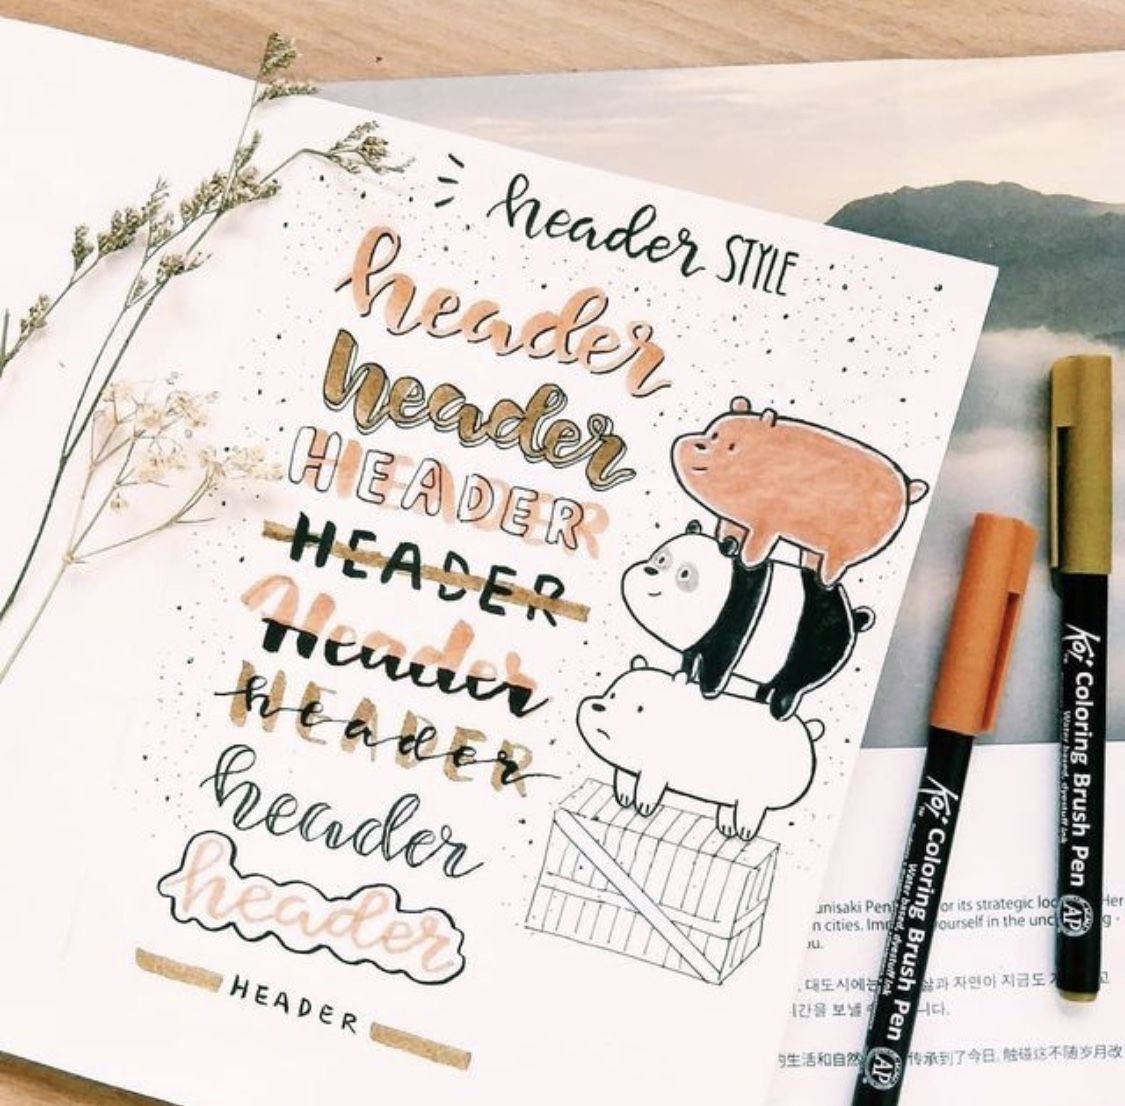 header STYLE
header
header
HEADER
HEADER
Header
HEADER
header
header
header
HEADER
Koi Coloring Brush Pen
Water based, dyestuff ink
AP
Koi Coloring Brush Pen
Water based, dyestuff ink
AP
or its strategic
Her
n cities.
ourself in the
대도시에는
삶과 자연이 지금도
고
보낼
니다.
的生活和自然
传承到了今日,
不随岁月改